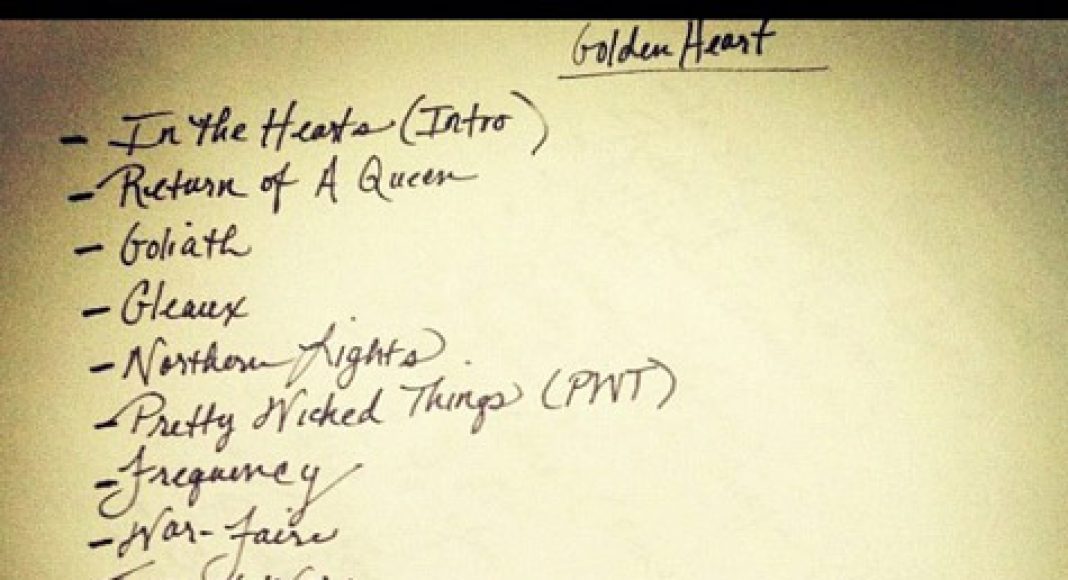 Golden Heart
- In The Hearts (Intro)
- Return of A Queen
- Goliath
- Gleaux
- Northern Lights
- Pretty Wicked Things (PWT)
- Frequency
- War-Faire